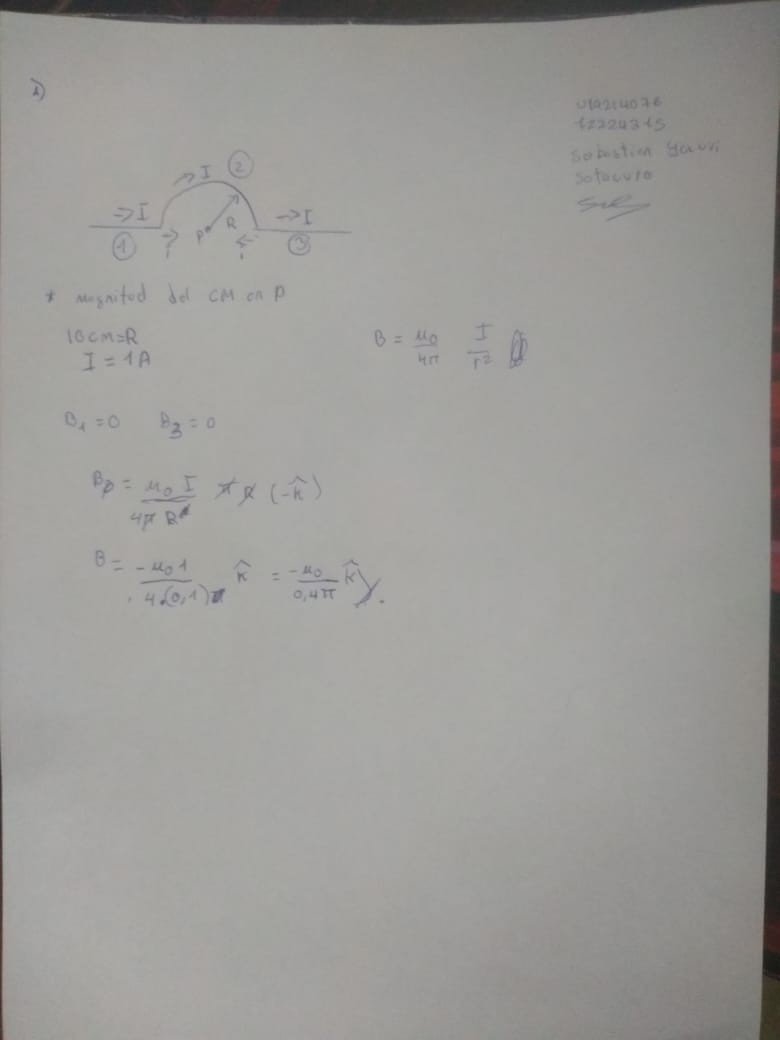 1)
U19214076
72224315
Sebastian Yauri
Sotacuro
→ I ②
→ I
→ I
P R
① ③
* magnitud del CM en P
10CM=R
I = 1A
B = μ₀/4π I/r²
B₁ = 0 B₃ = 0
= μ₀ I/4π R π R (-k̂)
B = -μ₀1/4(0,1) k̂ = -μ₀/0,4π k̂